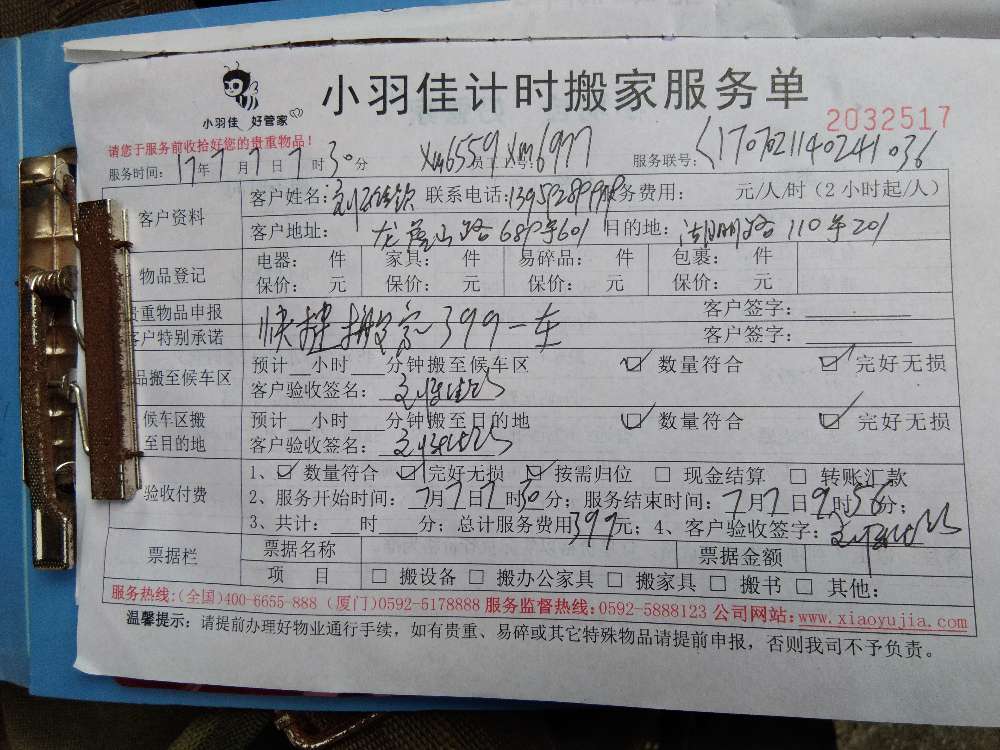 小羽佳计时搬家服务单
小羽佳 好管家
2032517
请您于服务前收拾好您的贵重物品！
服务时间：17年7月7日7时30分 xm6559 员工工号：xm6977 服务联号：1707021140241036
客户资料 客户姓名： 联系电话： 服务费用： 元/人/时（2小时起/人）
客户地址： 龙虎山路689号601 目的地：湖明路110号201
物品登记 电器： 件 家具： 件 易碎品： 件 包裹： 件
保价： 元 保价： 元 保价： 元 保价： 元
贵重物品申报 客户签字：
快捷搬家 399一车
客户特别承诺 客户签字：
品搬至候车区 预计__小时___分钟搬至候车区 ☑ 数量符合 ☑ 完好无损
客户验收签名：
候车区搬至目的地 预计__小时___分钟搬至目的地 ☑ 数量符合 ☑ 完好无损
客户验收签名：
验收付费 1、☑ 数量符合 ☑ 完好无损 ☑ 按需归位 □ 现金结算 □ 转账汇款
2、服务开始时间：7月7日7时30分；服务结束时间：7月7日9时56分；
3、共计： 时 分；总计服务费用399元；4、客户验收签字：
票据栏 票据名称 票据金额
项 目 □ 搬设备 □ 搬办公家具 □ 搬家具 □ 搬书 □ 其他：
服务热线：(全国)400-6655-888 (厦门)0592-5178888 服务监督热线：0592-5888123 公司网站：www.xiaoyujia.com
温馨提示：请提前办理好物业通行手续，如有贵重、易碎或其它特殊物品请提前申报，否则我司不予负责。